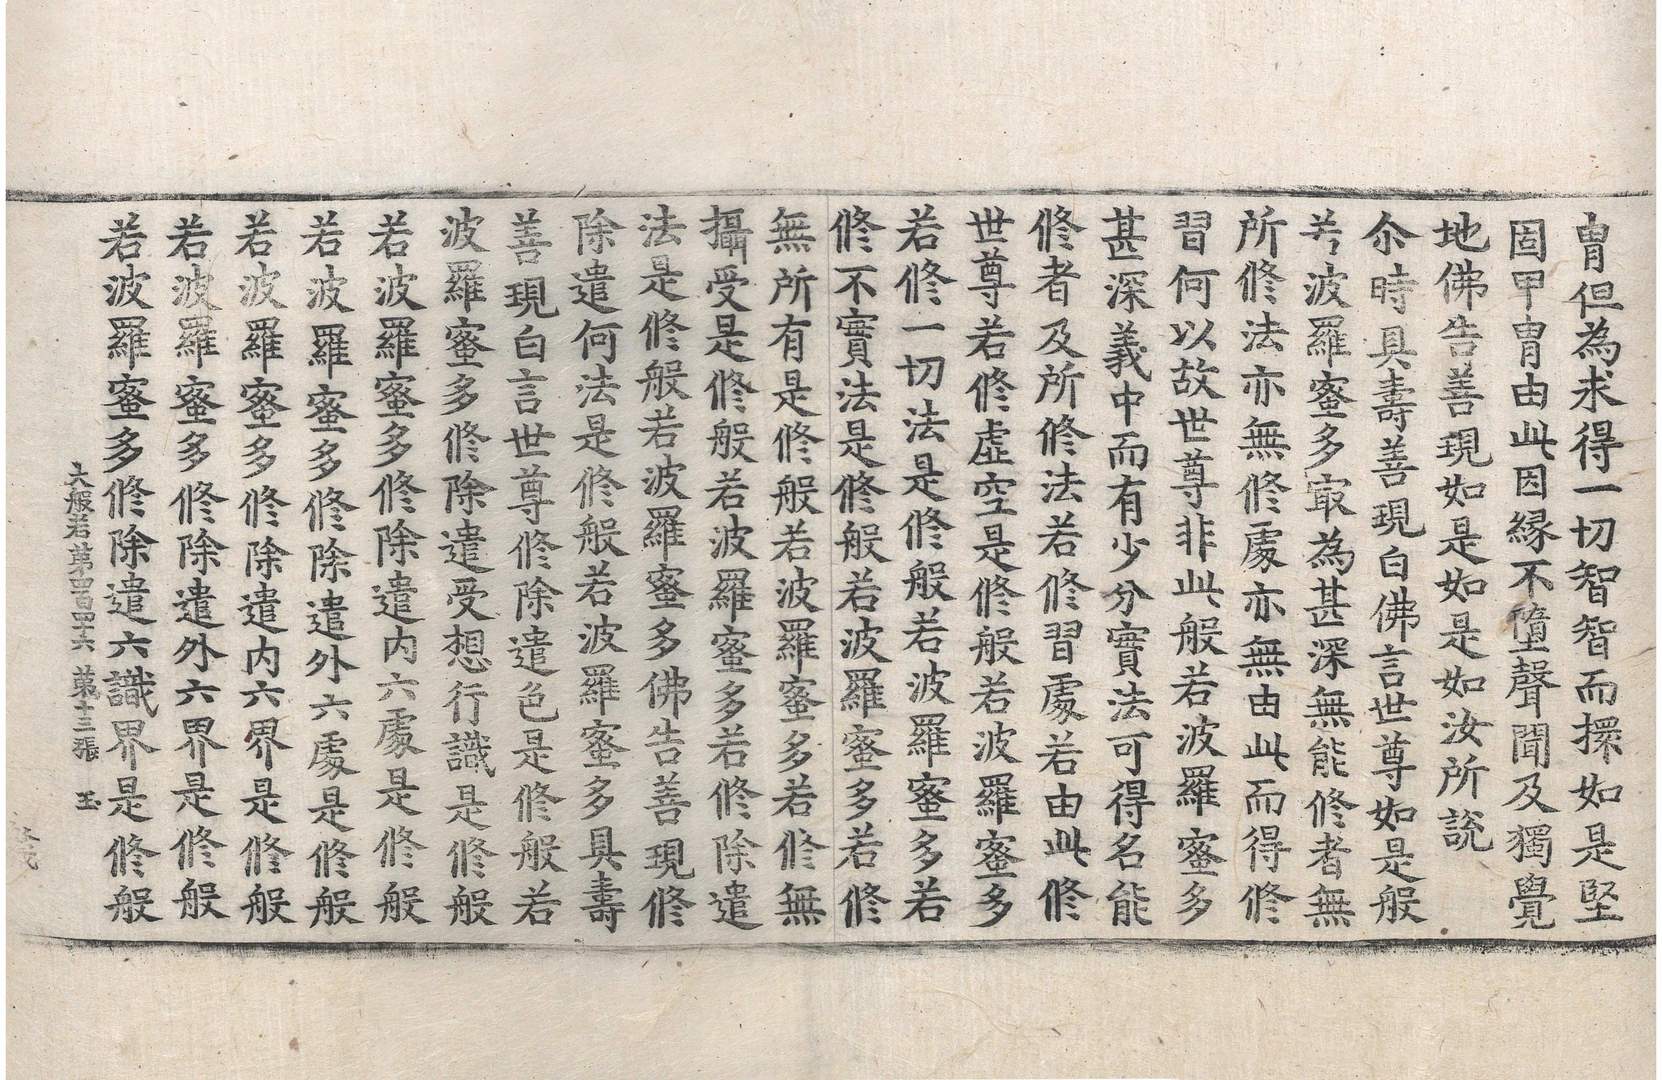 胄但為求得一切智智而擐如是堅
固甲胄由此因緣不墮聲聞及獨覺
地佛告善現如是如是如汝所說
尒時具壽善現白佛言世尊如是般
若波羅蜜多㝡為甚深無能修者無
所修法亦無修處亦無由此而得修
習何以故世尊非此般若波羅蜜多
甚深義中而有少分實法可得名能
修者及所修法若修習處若由此修
世尊若修虛空是修般若波羅蜜多
若修一切法是修般若波羅蜜多若
修不實法是修般若波羅蜜多若修
無所有是修般若波羅蜜多若修無
攝受是修般若波羅蜜多若修除遣
法是修般若波羅蜜多佛告善現修
除遣何法是修般若波羅蜜多具壽
善現白言世尊修除遣色是修般若
波羅蜜多修除遣受想行識是修般
若波羅蜜多修除遣內六處是修般
若波羅蜜多修除遣外六處是修般
若波羅蜜多修除遣內六界是修般
若波羅蜜多修除遣外六界是修般
若波羅蜜多修除遣六識界是修般
大般若第四百四十六 第十三張 玉